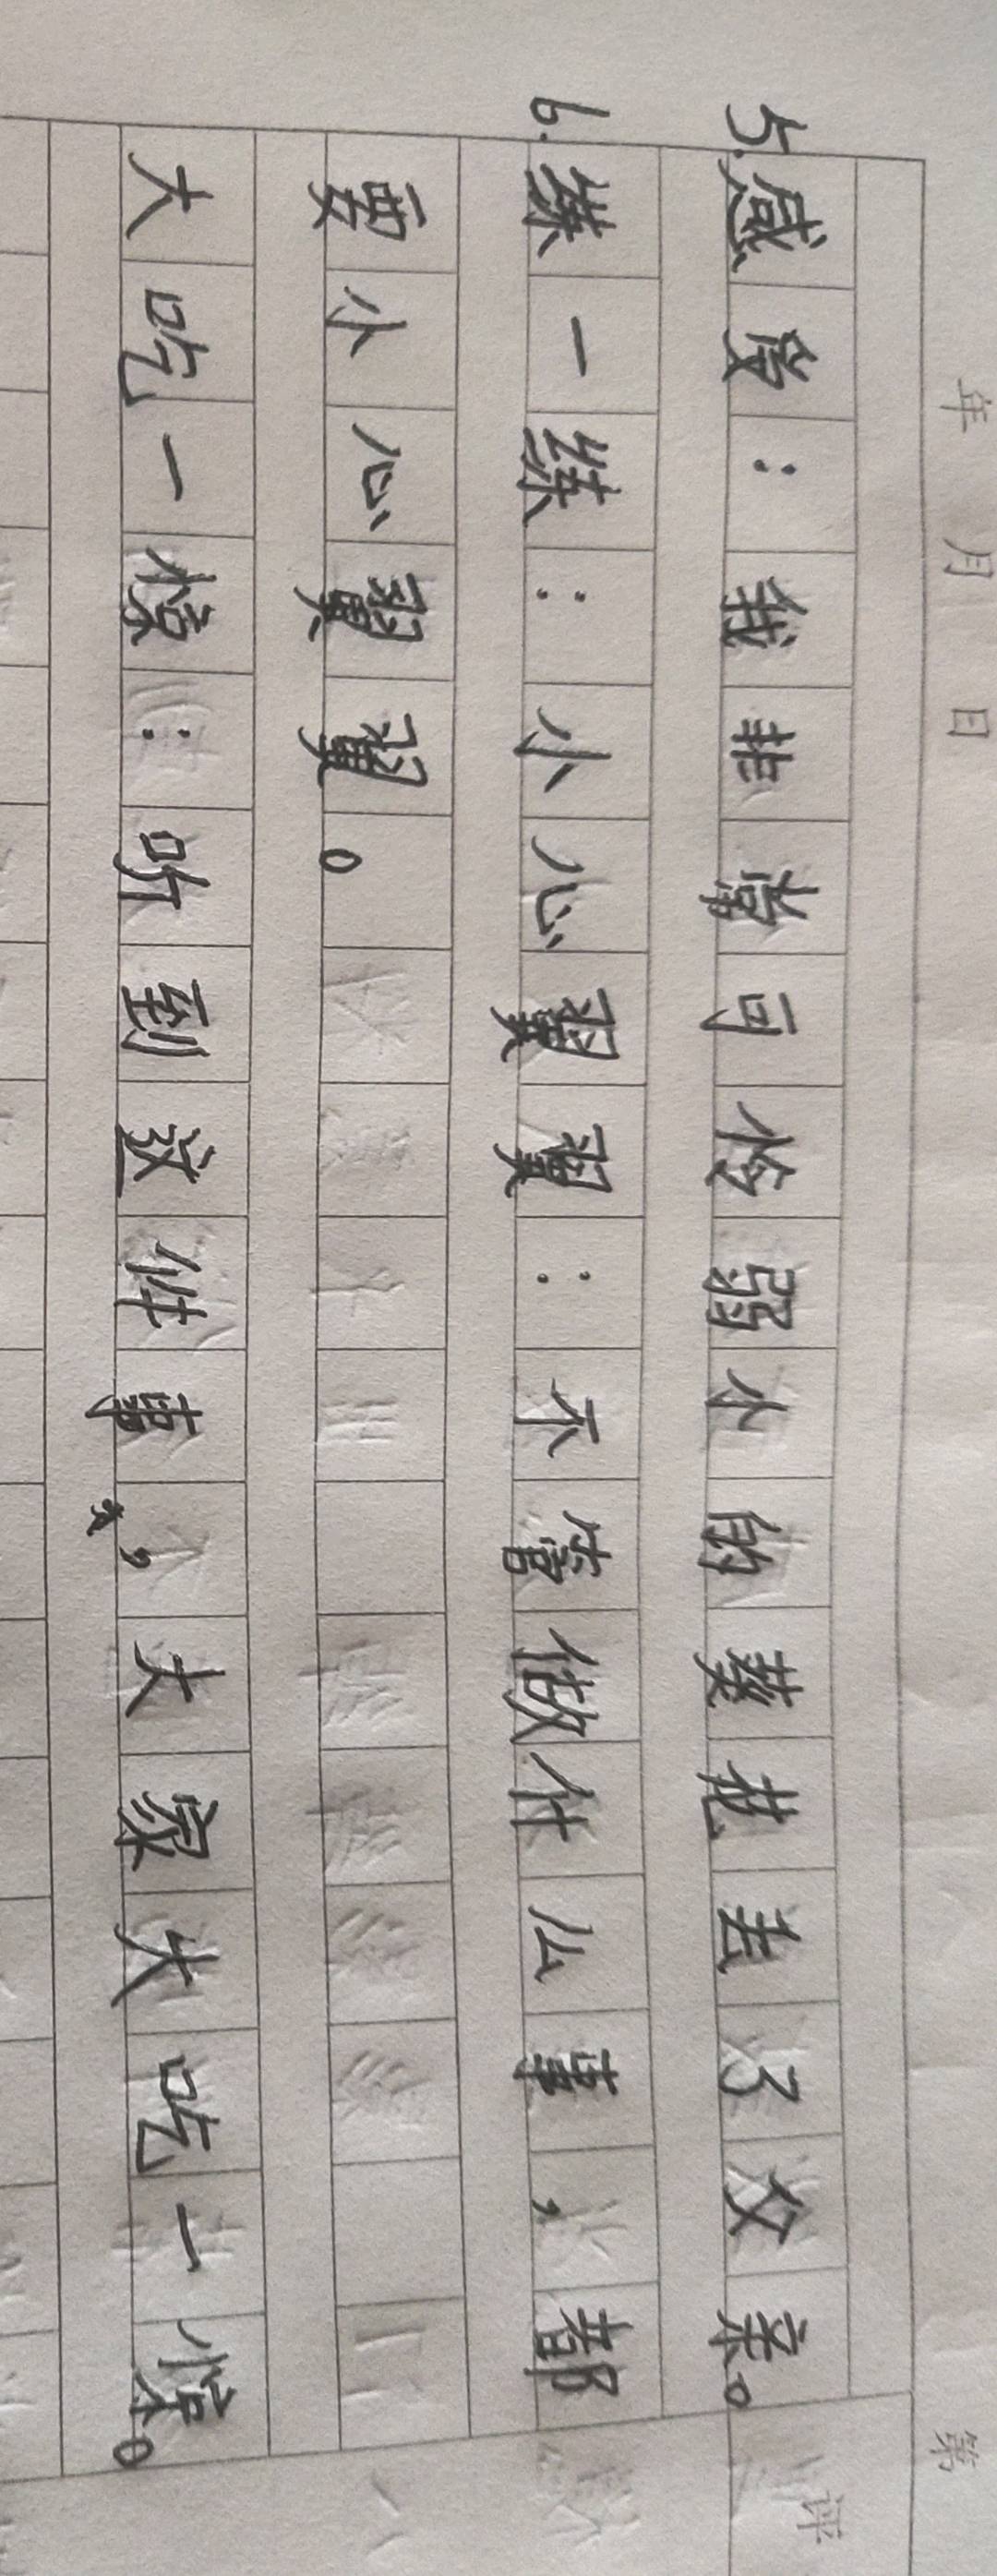 年 月 日
第
5.感受:我非常可怜弱小的葵花丢了父亲。
6.练一练:小心翼翼:不管做什么事,都
要小心翼翼。
大吃一惊:听到这件事,大家大吃一惊。
评